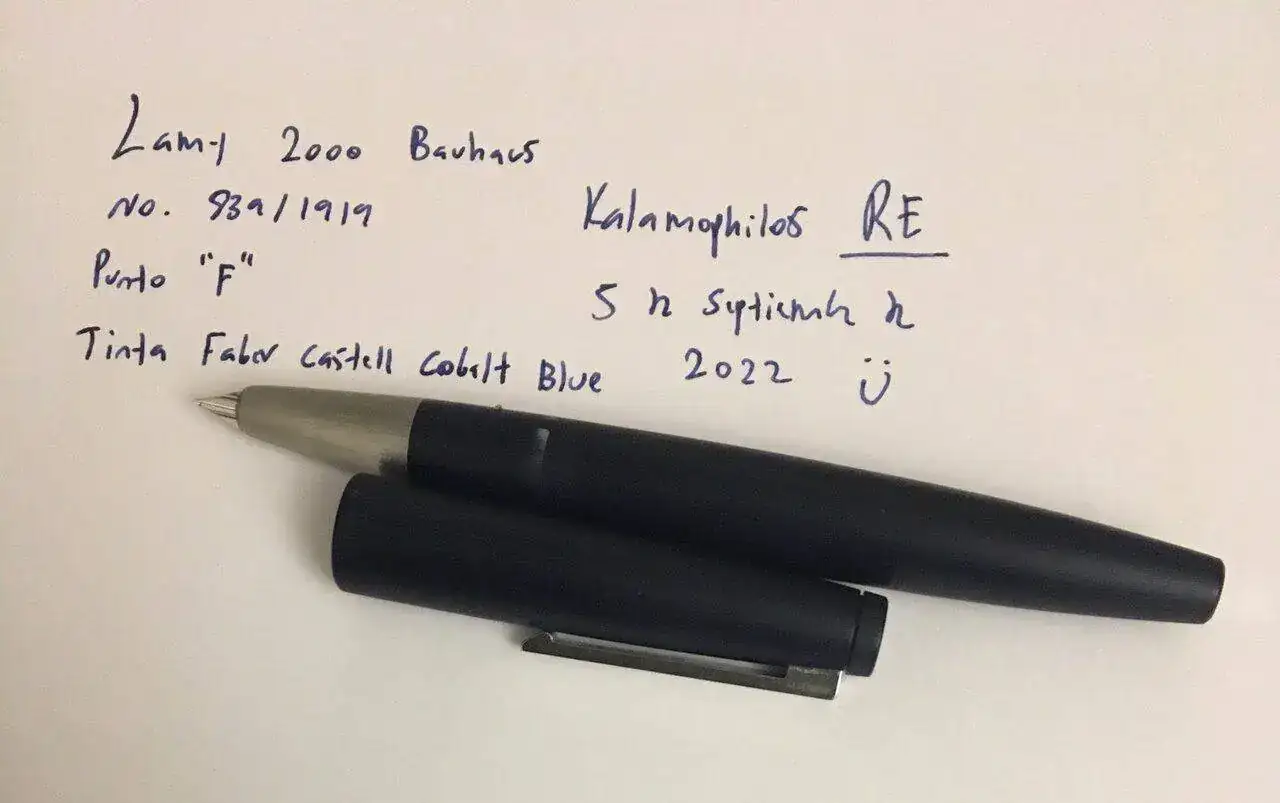 Lamy 2000 Bauhaus
No. 839/1919
Punto "F"
Tinta Faber Castell Cobalt Blue
Kalamophilos RE
5 de Septiembre de
2022 Ü